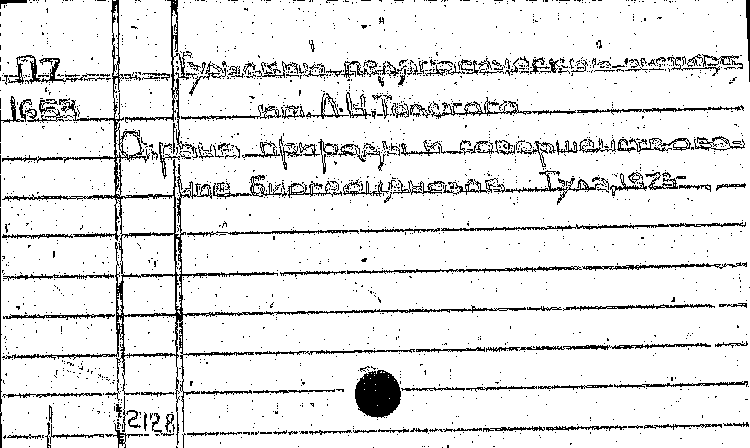 П7 Тульский педагогический институт
1653 им. Л.Н.Толстого
Охрана природы и совершенствова-
ние биогеоценозов Тула, 1975
2128